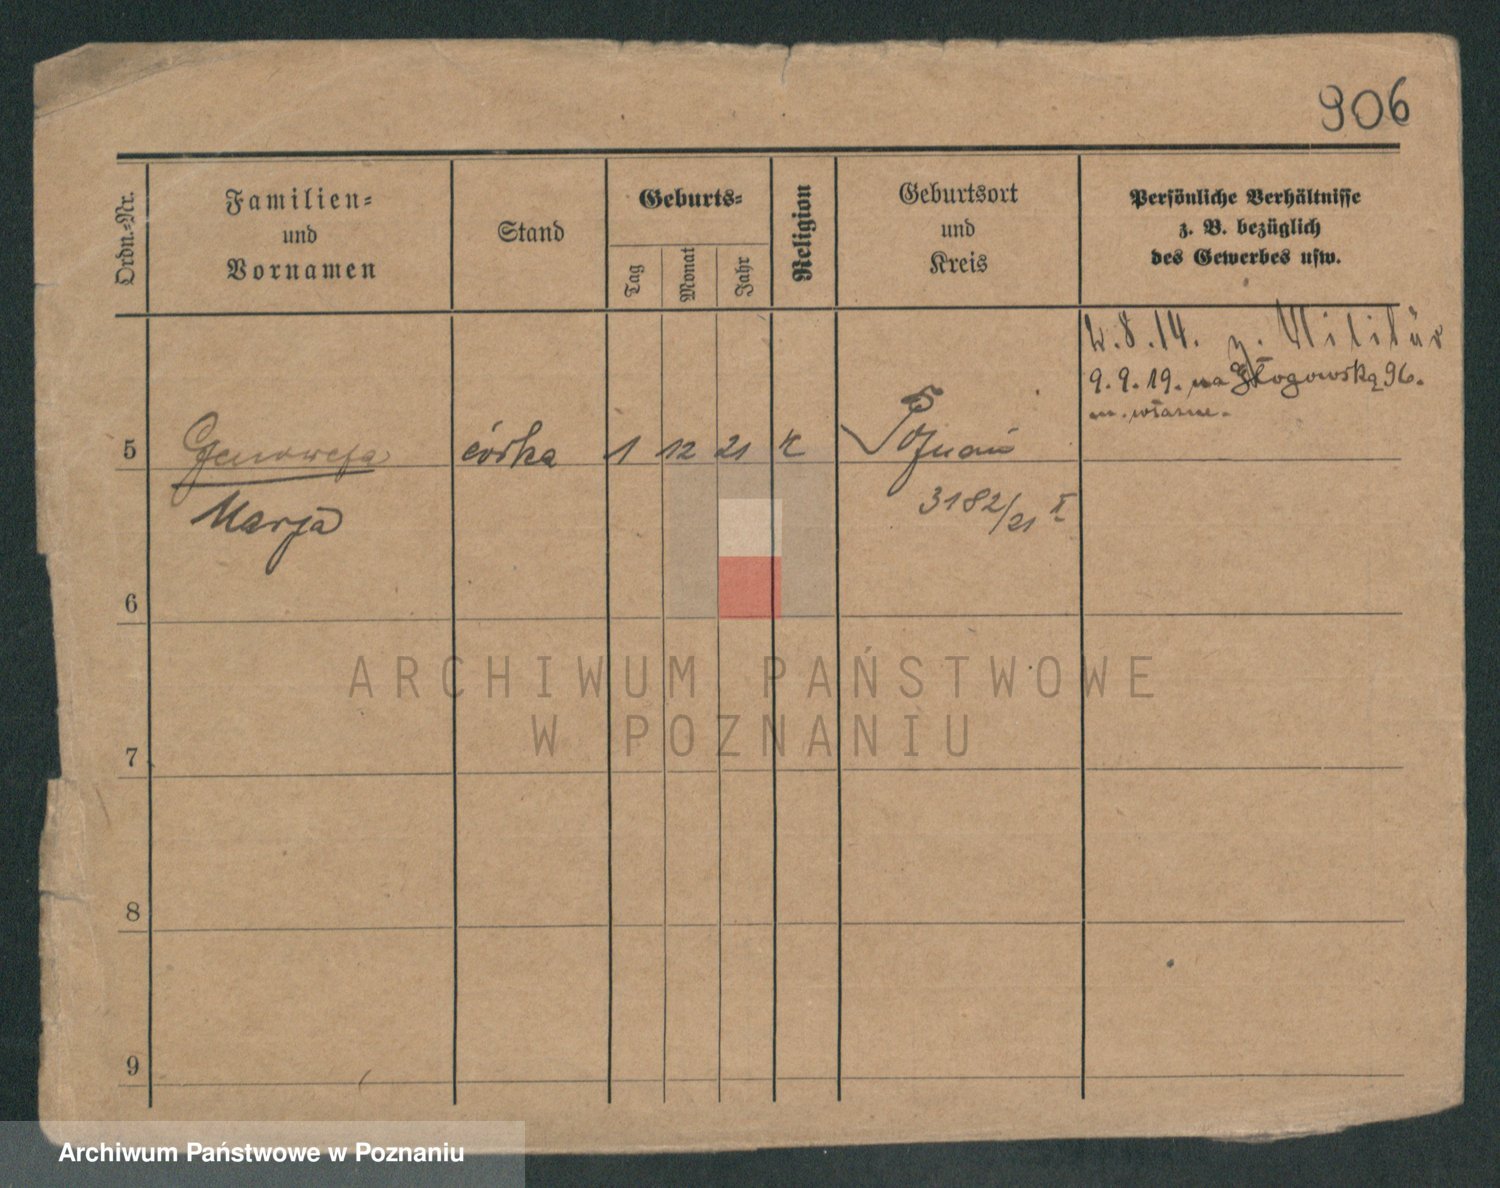 906
Ordn.-Nr.
Familien-
und
Vornamen
Stand
Geburts-
Tag
Monat
Jahr
Religion
Geburtsort
und
Kreis
Persönliche Verhältnisse
z. B. bezüglich
des Gewerbes usw.
8.14. z. Militär
9.9.19. na Głogowską 96.
m. własne.
5 Genowefa córka 1 12 21 K Poznań
Marja
3182/21 I
6
7
8
9
ARCHIWUM PAŃSTWOWE
W POZNANIU
Archiwum Państwowe w Poznaniu